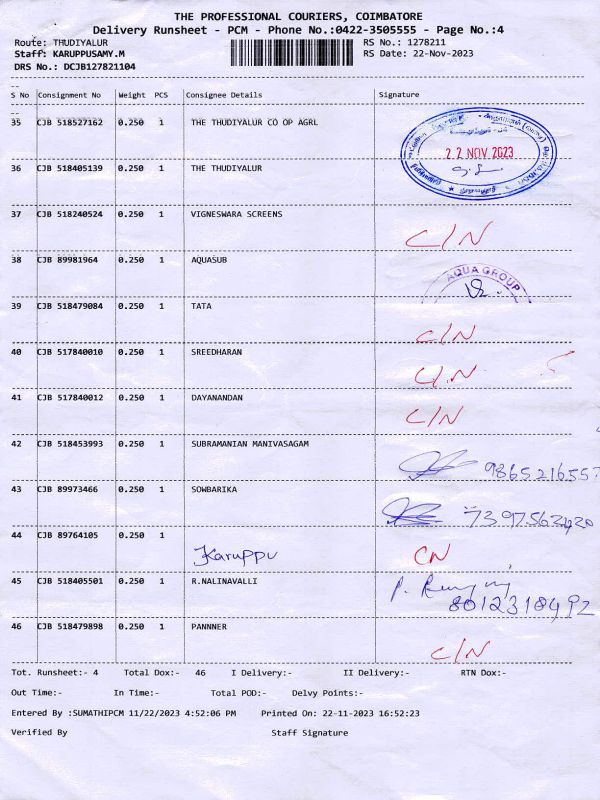 THE PROFESSIONAL COURIERS, COIMBATORE
Delivery Runsheet - PCM - Phone No.:0422-3505555 - Page No.:4
Route: THUDIYALUR RS No.: 1278211
Staff: KARUPPUSAMY.M RS Date: 22-Nov-2023
DRS No.: DCJB127821104
S No Consignment No Weight PCS Consignee Details Signature
35 CJB 518527162 0.250 1 THE THUDIYALUR CO OP AGRL
22 NOV 2023
36 CJB 518405139 0.250 1 THE THUDIYALUR
37 CJB 518240524 0.250 1 VIGNESWARA SCREENS
C/N
38 CJB 89981964 0.250 1 AQUASUB
AQUA GROUP
39 CJB 518479084 0.250 1 TATA
C/N
40 CJB 517840010 0.250 1 SREEDHARAN
C/N
41 CJB 517840012 0.250 1 DAYANANDAN
C/N
42 CJB 518453993 0.250 1 SUBRAMANIAN MANIVASAGAM
43 CJB 89973466 0.250 1 SOWBARIKA
7397562420
44 CJB 89764105 0.250 1
Karuppu CN
45 CJB 518405501 0.250 1 R.NALINAVALLI
8012318492
46 CJB 518479898 0.250 1 PANNNER
C/N
Tot. Runsheet:- 4 Total Dox:- 46 I Delivery:- II Delivery:- RTN Dox:-
Out Time:- In Time:- Total POD:- Delvy Points:-
Entered By :SUMATHIPCM 11/22/2023 4:52:06 PM Printed On: 22-11-2023 16:52:23
Verified By Staff Signature